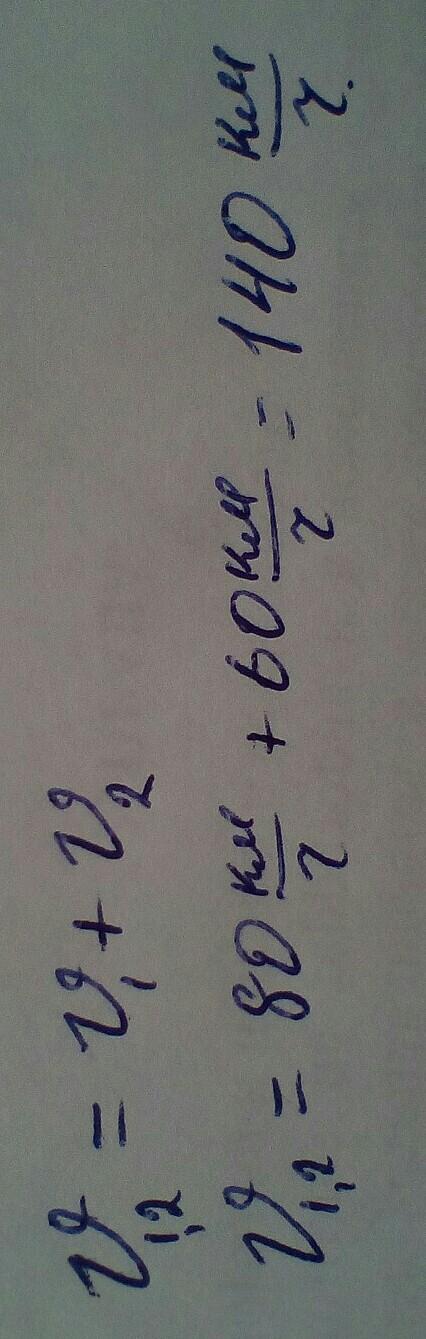 υ₁,₂ = υ₁ + υ₂
υ₁,₂ = 80 км/ч + 60 км/ч = 140 км/ч.